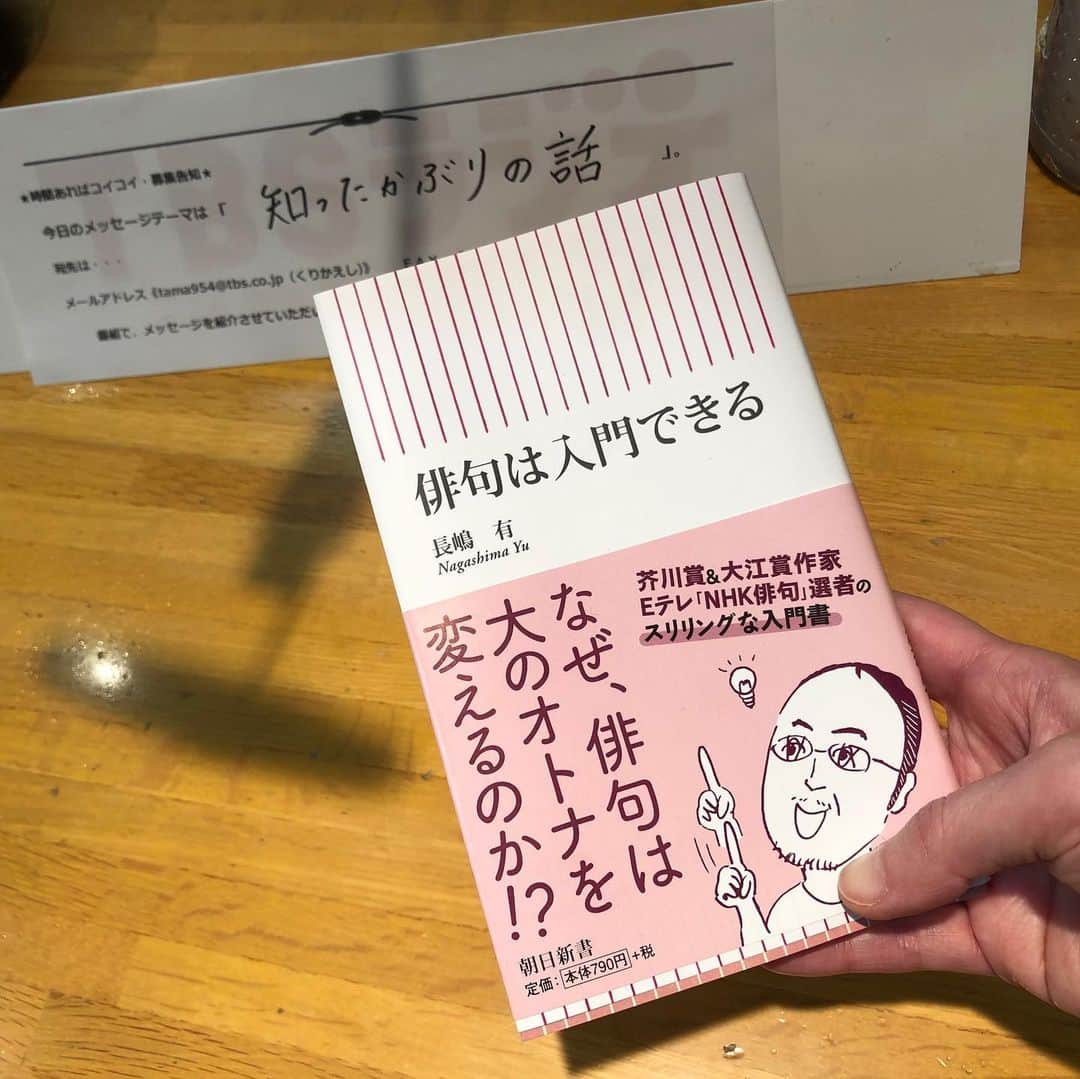 ★時間あればコイコイ・募集告知★
今日のメッセージテーマは「 知ったかぶりの話 」。
宛先は・・・
メールアドレス《tama954@tbs.co.jp（くりかえし)》 FAX
番組で、メッセージを紹介させていただい
俳句は入門できる
長嶋 有
Nagashima Yu
芥川賞&大江賞作家
Eテレ「NHK俳句」選者の
スリリングな入門書
なぜ、俳句は
大のオトナを
変えるのか!?
朝日新書
定価：本体790円+税